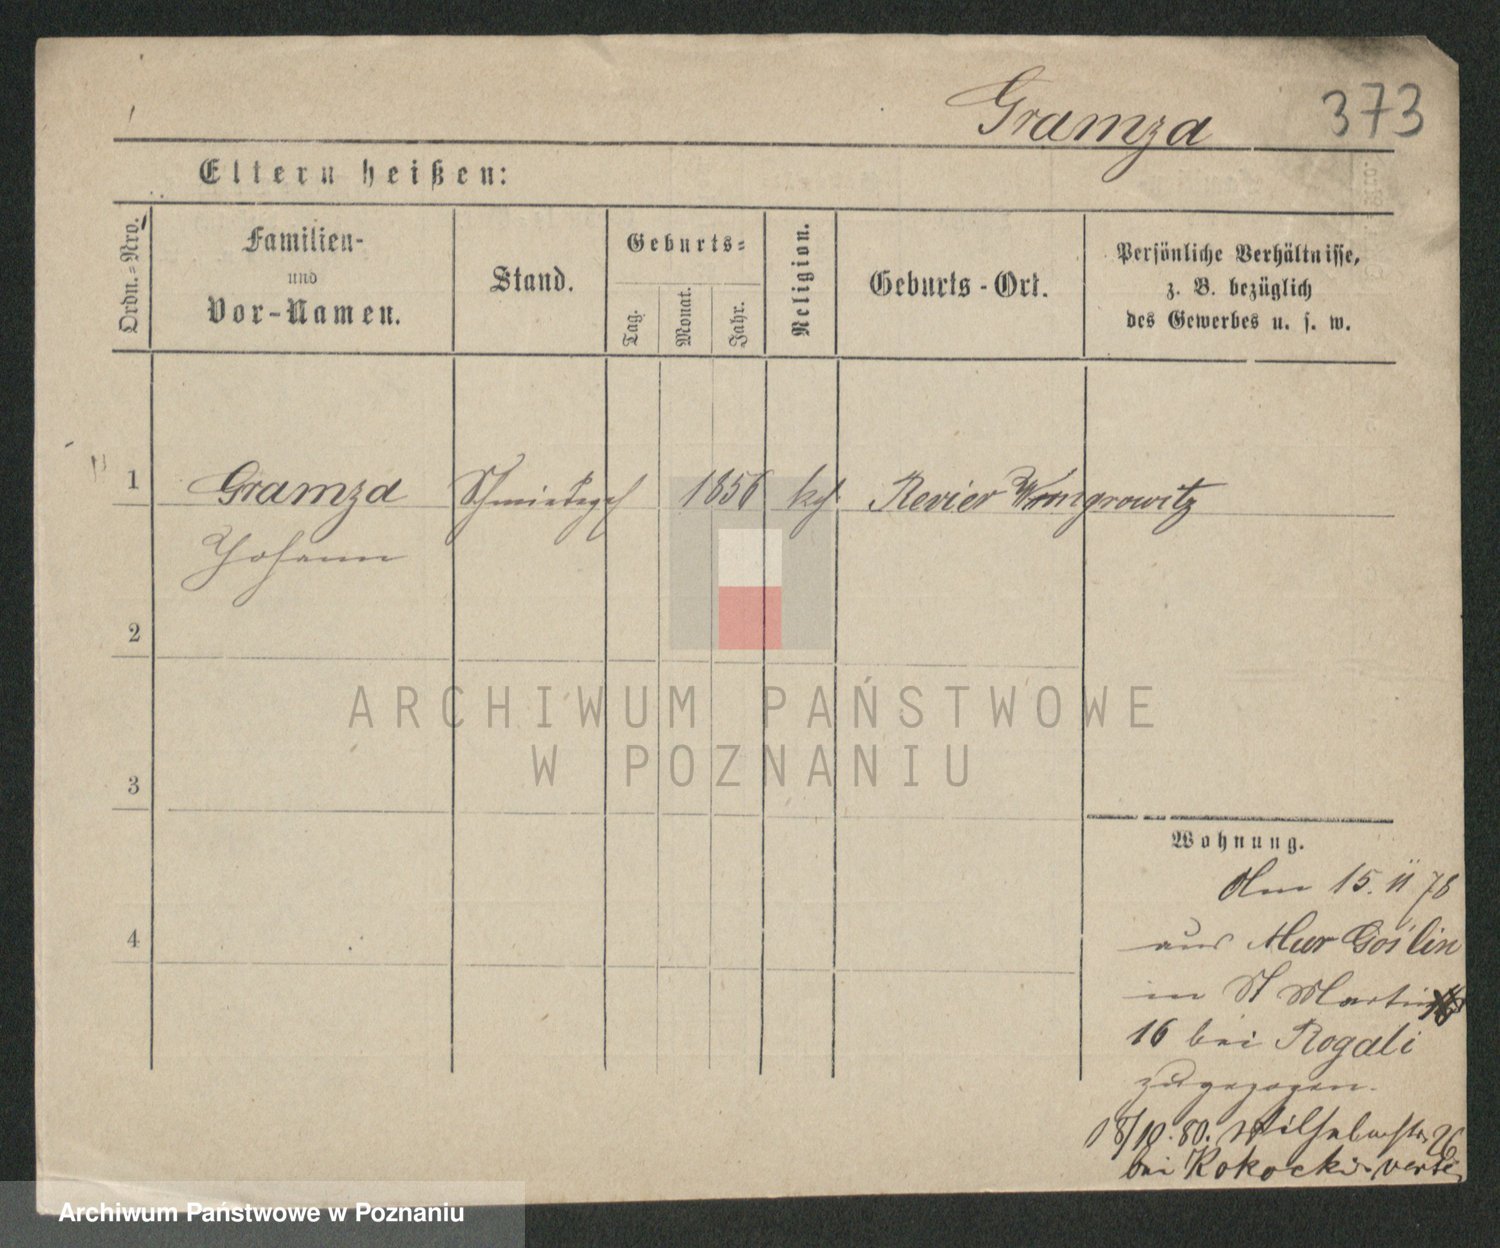 Gramza 373
Eltern heißen:
Ordn.=Nro.
Familien-
und
Vor-Namen.
Stand.
Geburts=
Tag.
Monat.
Jahr.
Religion.
Geburts-Ort.
Persönliche Verhältnisse,
z. B. bezüglich
des Gewerbes u. s. w.
1 Gramza Schmiedeges 1856 kath. Revier Wongrowitz
Johann
2
3
4
ARCHIWUM PAŃSTWOWE
W POZNANIU
Wohnung.
Am 15. 11 78
aus Mur Goślin
in St Martin
16 bei Rogali
zugezogen.
18/10. 80. Wilhelmstr. 26
bei Kokocki
Archiwum Państwowe w Poznaniu